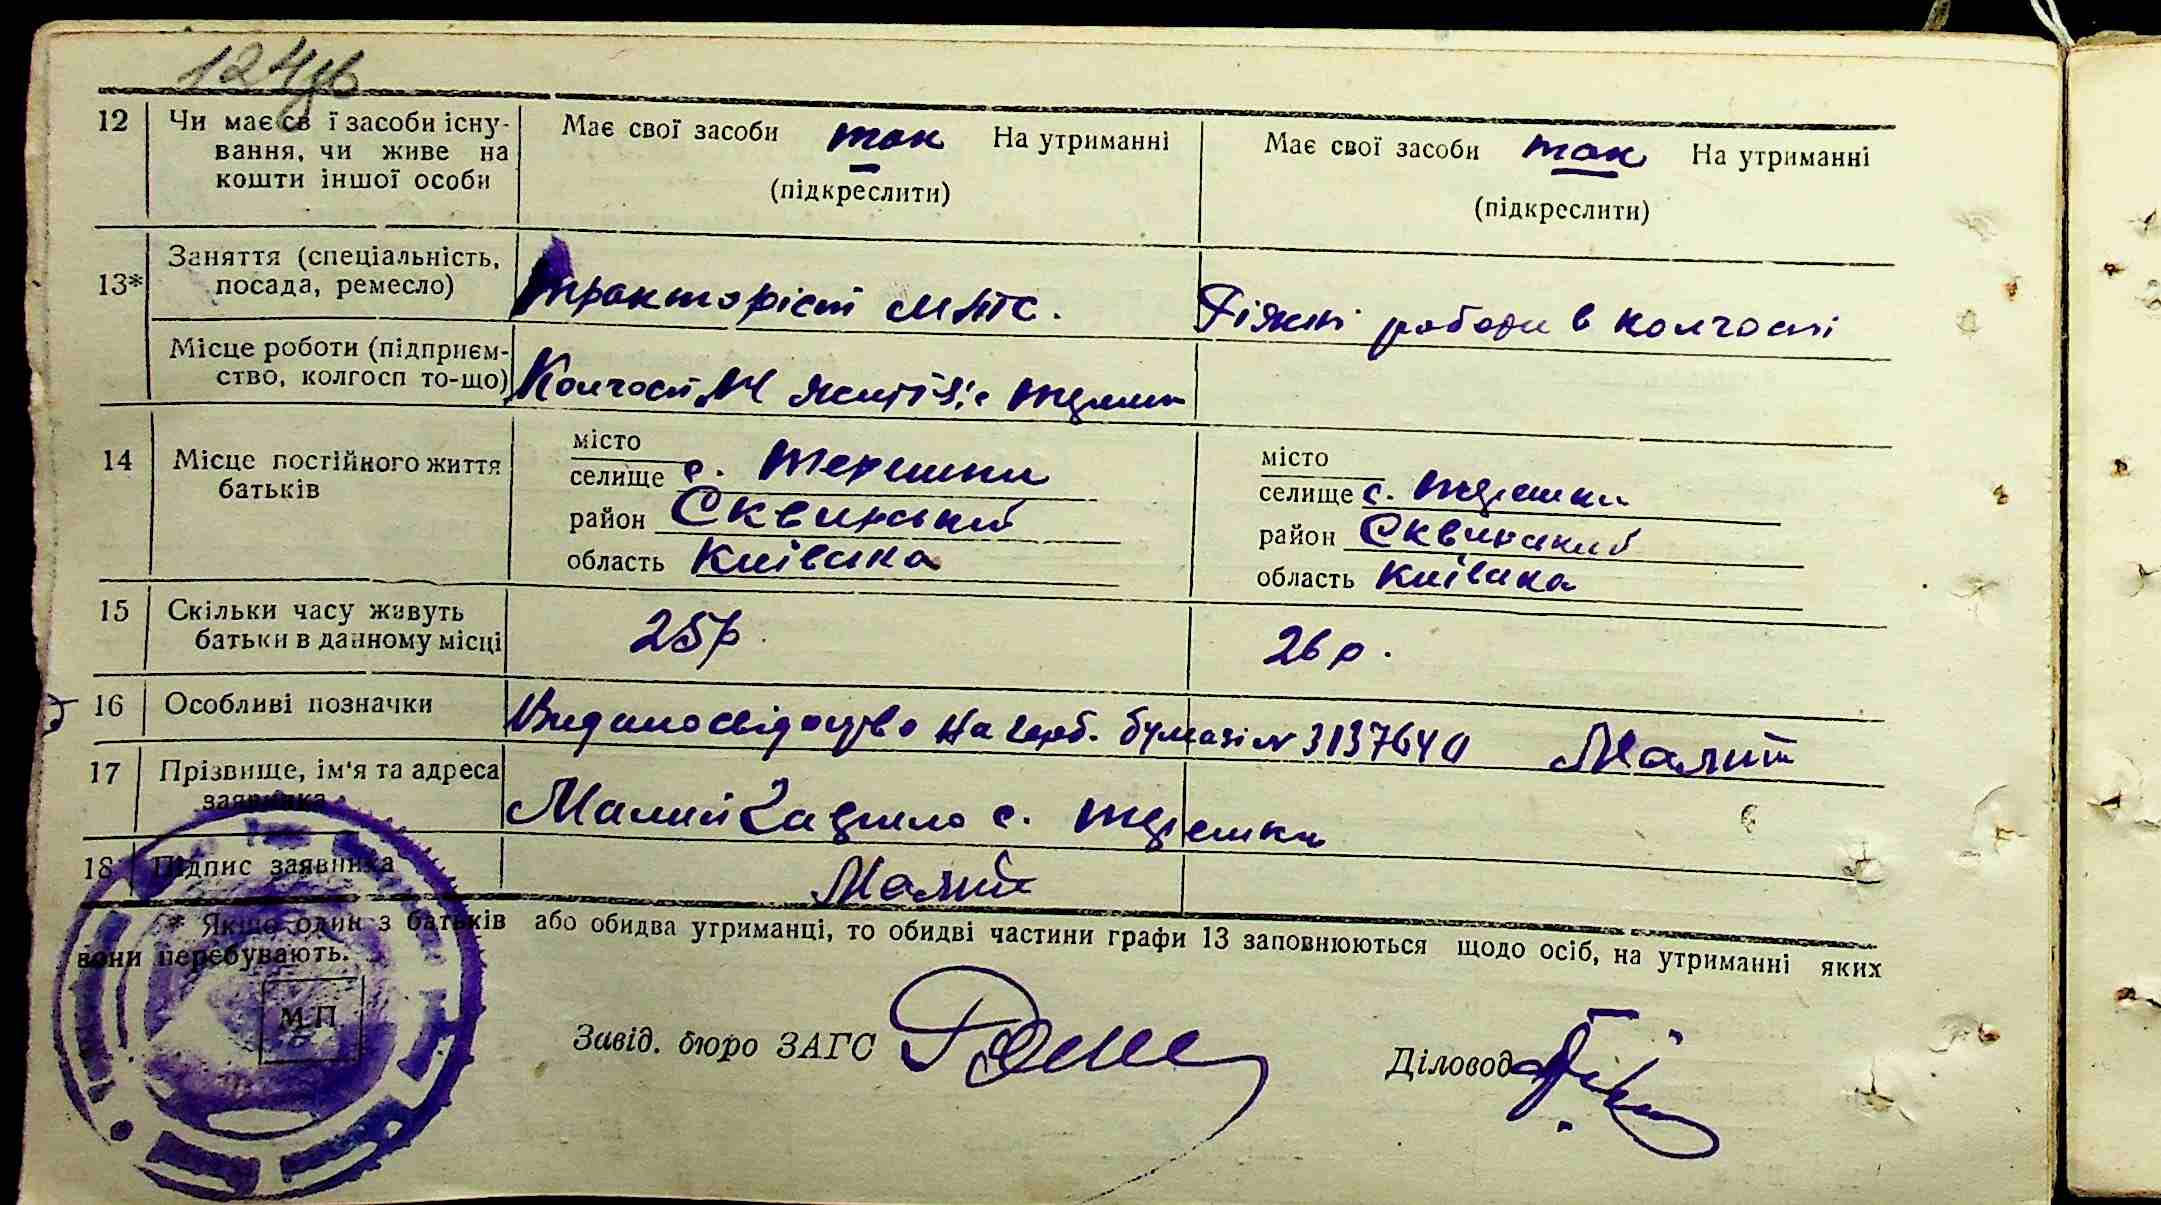 124зв
12 Чи має св ї засоби існу- Має свої засоби так На утриманні Має свої засоби так На утриманні
вання, чи живе на (підкреслити) (підкреслити)
кошти іншої особи
13* Заняття (спеціальність, тракторіст МТС. Ріжні роботи в колгоспі
посада, ремесло)
Місце роботи (підприєм- Колгосп
ство, колгосп то-що)
14 Місце постійного життя місто місто
батьків селище с. Терешки селище с. Терешки
район Сквирський район Сквирський
область Київська область Київська
15 Скільки часу живуть 25р. 26 р.
батьки в данному місці
16 Особливі позначки Видано свідоцтво на герб. бумазі № 3137640 Малий
17 Прізвище, ім'я та адреса Малий с. Терешки
заявника
18 Підпис заявника Малий
* Якщо один з батьків або обидва утриманці, то обидві частини графи 13 заповнюються щодо осіб, на утриманні яких
вони перебувають.
М.П
Завід. бюро ЗАГС
Діловод